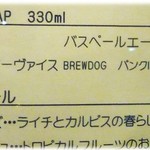 AP 330ml
バスペールエー
ーヴァイス BREWDOG パンクI
ール
ど…ライチとカルピスの春らし
ュ…トロピカルフルーツのお